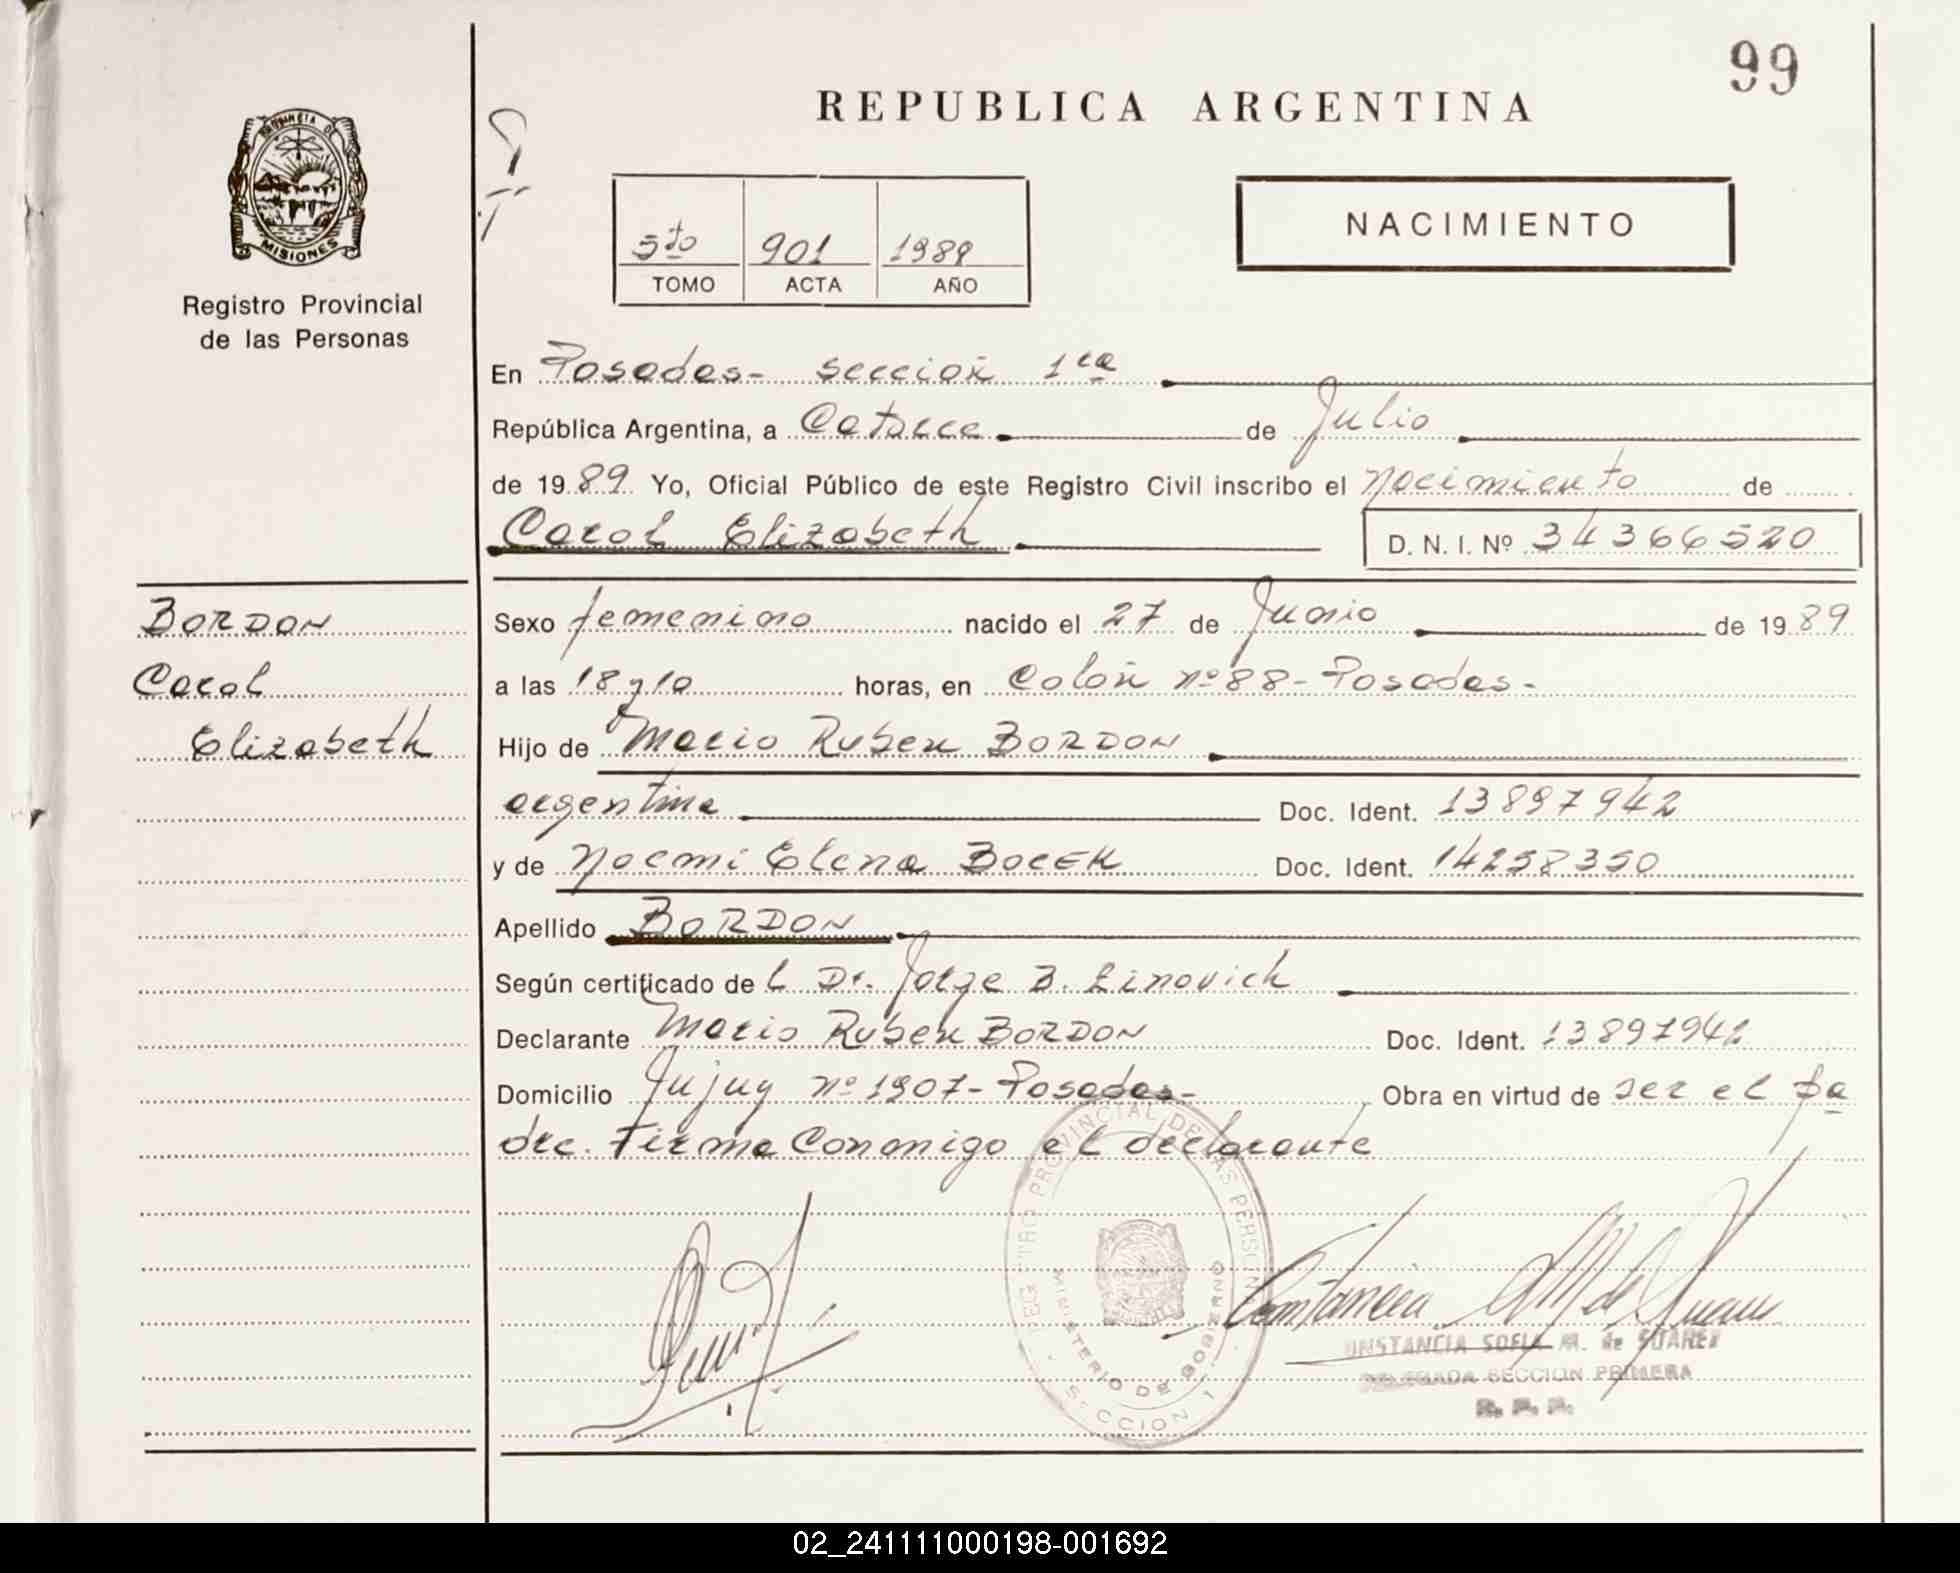 99
REPUBLICA ARGENTINA
PROVINCIA DE
MISIONES
Registro Provincial
de las Personas
5to 901 1989
TOMO ACTA AÑO
NACIMIENTO
En Posadas- sección 1ra
República Argentina, a Catorce de Julio
de 1989 Yo, Oficial Público de este Registro Civil inscribo el nacimiento de
Carol Elizabeth D. N. I. Nº 34366520
BORDON
Carol
Elizabeth
Sexo femenino nacido el 27 de Junio de 1989
a las 18 y 10 horas, en Colón nº 88- Posadas-
Hijo de Mario Ruben BORDON
argentina Doc. Ident. 13897942
y de Noemi Elena BOCEK Doc. Ident. 14258350
Apellido BORDON
Según certificado de l Dr. Jorge B. Linovich
Declarante Mario Ruben BORDON Doc. Ident. 13897942
Domicilio Jujuy nº 1907- Posadas- Obra en virtud de ser el pa
dre. Firma Conmigo el declarante
REGISTRO PROVINCIAL DE LAS PERSONAS
MINISTERIO DE GOBIERNO
SECCION 1
Constancia M de Suarez
CONSTANCIA SOFIA M. de SUAREZ
DELEGADA SECCION PRIMERA
R. P. P.
02_241111000198-001692